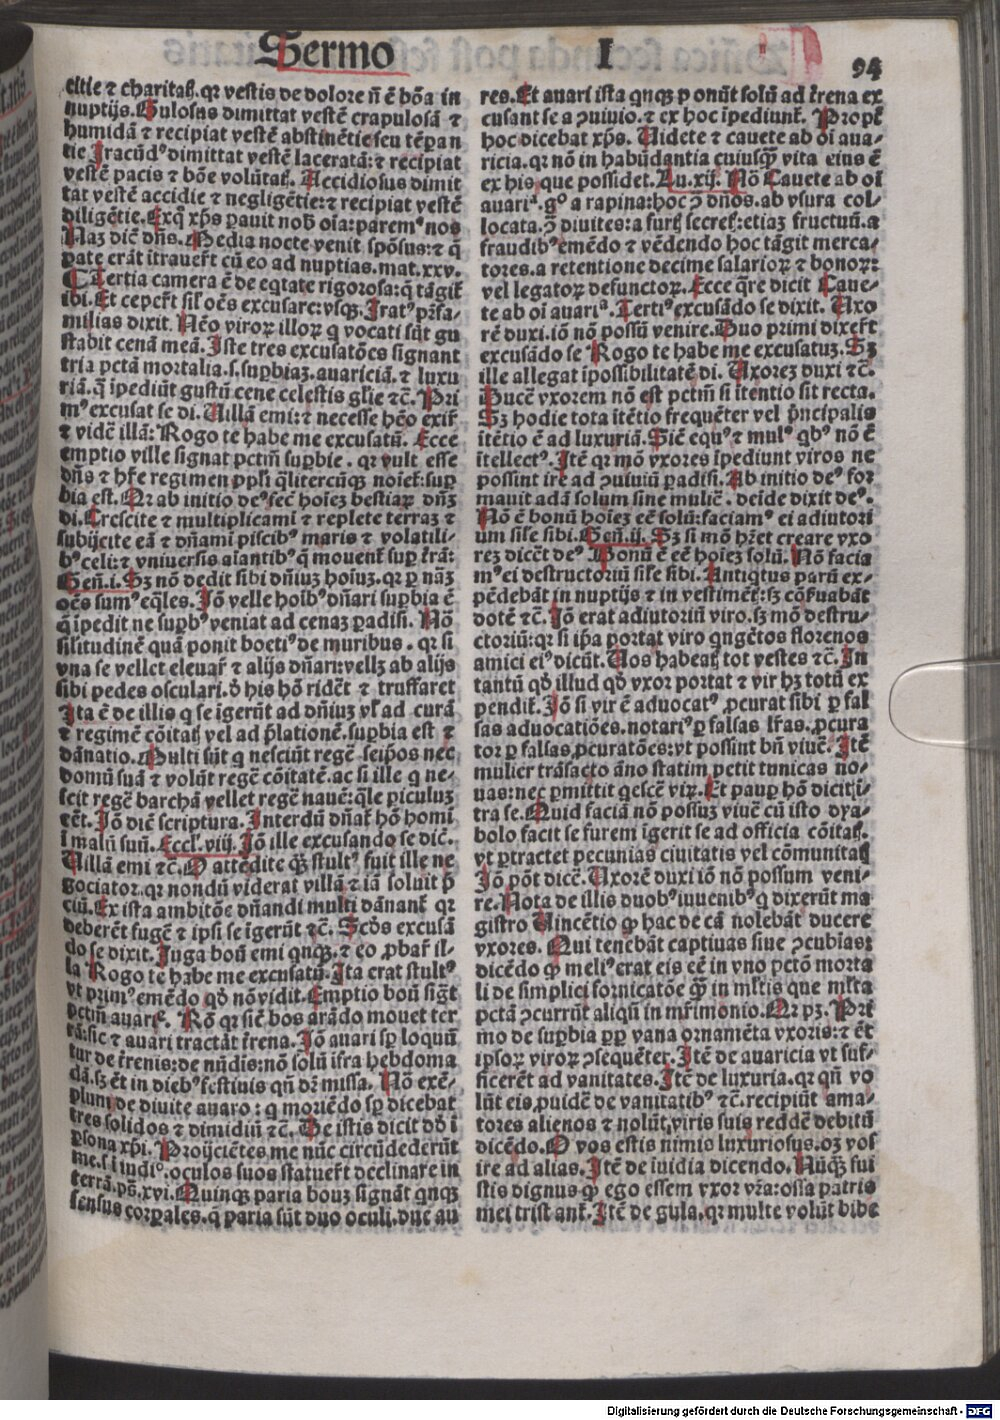 Sermo I 94
citie ⁊ charitaꝭ. qꝛ vestis de dolore nō ē bōa in
nuptijs. Gulosus dimittat vestē crapulosā ⁊
humidā ⁊ recipiat vestē abstinētie seu tēperan
tie Iracūdꝰ dimittat vestē laceratā: ⁊ recipiat
vestē pacis ⁊ bōe volūtaꝭ. Accidiosus dimit
tat vestē accidie ⁊ negligētie: ⁊ recipiat vestē
diligētie. Exq̄ xp̄s parauit nob̄ oīa: paremꝰ nos
Naꝫ dic̄ dn̄s. Media nocte venit spōsus: ⁊ q̄
pate erāt ītrauer̄t cū eo ad nuptias. mat. xxv.
Tertia camera ē de eq̄tate rigorosa: q̄ tāgiꝉ
ibi. Et ceper̄t siĺ oēs excusare: vsqꝫ. Iratꝰ pr̄fa-
milias dixit. Nēo viroꝝ illoꝝ q̄ vocati sūt gu
stabit cenā meā. Iste tres excusatōes signant
tria pctā mortalia. s. supbiaꝫ. auariciā. ⁊ luxu
riā. q̄ īpediūt gustū cene celestis glīe ⁊c̄. Pri
mꝰ excusat se di. Uillā emi: ⁊ necesse hēo exir̄
⁊ vidē illā: Rogo te habe me excusatū. Ecce
emptio ville signat pctm̄ supbie. qꝛ vult esse
dn̄s ⁊ hr̄e regimen ppl̄i q̄litercūqꝫ noieꝉ: sup
bia est. Qꝛ ab initio deꝰ fec̄ hoīeꝫ bestiaꝝ dn̄ꝫ
di. Crescite ⁊ multiplicamī ⁊ replete terraꝫ ⁊
subijcite eā ⁊ dn̄ami piscibꝰ maris ⁊ volatili-
bꝰ celi: ⁊ vniuersis aīantibꝰ q̄ mouenꝉ sup tr̄ā:
Geñ. i. Sꝫ nō dedit sibi dn̄iuꝫ hoīuꝫ. qꝛ p nāꝫ
oēs sumꝰ eq̄les. Iō velle hoībꝰ dn̄ari supbia ē
q̄ īpedit ne supbꝰ veniat ad cenaꝫ padisi. Nō
silitudinē quā ponit boetiꝰ de muribus. qꝛ si
vna se vellet eleuar̄ ⁊ alijs dn̄ari: velleꝫ ab alijs
sibi pedes osculari. ꝺ his hō ridēt ⁊ truffaret
Ita ē de illis q̄ se īgerūt ad dn̄iuꝫ vĺ ad curā
⁊ regimē cōitaꝭ vel ad p̄lationē. supbia est ⁊
dānatio. Multi sūt q̄ nesciūt regē seip̄os nec
domū suā ⁊ volūt regē cōitatē. ac si ille q̄ ne-
scit regē barchā vellet regē nauē: q̄le piculuꝫ
eēt. Iō dic̄ scriptura. Interdū dn̄aꝉ hō homi
ī malū suū. Eccl. viij. Iō ille excusando se dic̄.
Uillā emi ⁊c̄. O attēdite qꝫ stultꝰ fuit ille ne
gociator. qꝛ nondū viderat villā ⁊ iā soluit p̄
ciū. Ex ista ambitōe dn̄andi multi dānanꝉ qꝛ
deberēt fugē ⁊ ipsi se īgerūt ⁊c̄. Scd̄s excusā
do se dixit. Iuga boū emi qnqꝫ. ⁊ eo ꝓbar̄ il-
la Rogo te habe me excusatū. Ita erat stultꝰ
vt primꝰ emēdo qd̄ nō vidit. Emptio boū siḡt
pctm̄ auarie. Rō qꝛ sic̄ bos arādo mouet ter
rā: sic ⁊ auari tractāt tr̄ena. Iō auari sp̄ loquū
tur de tr̄enis: de nūdis: nō solū ifra hebdoma
dā. sꝫ ēt in diebꝰ festiuis qn̄ dr̄ missa. Nō exē-
plum de diuite auaro: q̄ moriēdo sp̄ dicebat
tres solidos ⁊ dimidiū ⁊c̄. De istis dicit dd̄ ī
psona xp̄i. Proijciētes me nūc circūdederūt
me. s. ī iudiꝰ: oculos suos statuer̄t declinare in
terrā. ps̄. xvi. Quinqꝫ paria bouꝫ signāt qnqꝫ
sensus corpales. q̄ paria sūt duo oculi. due au
res. Et auari ista qnqꝫ ponūt solū ad tr̄ena ex
cusant se a ꝯuiuio. ⁊ ex hoc īpediunꝉ. Propt̄
hoc dicebat xp̄s. Uidete ⁊ cauete ab oī aua-
ricia. qꝛ nō in habūdantia cuiusqꝫ vita eius ē
ex his que possidet. Lu. xij. Nō Cauete ab oī
auariᵃ. gͦ a rapina: hoc ꝯ dn̄os. ab vsura col-
locata. ꝯ diuites: a furꝭ secreꝭ: etiaꝫ fructuū. a
fraudibꝰ emēdo ⁊ vēdendo hoc tāgit merca-
tores. a retentione decime salarioꝝ ⁊ bonoꝝ:
vel legatoꝝ defunctoꝝ. Ecce q̄re dicit Caue-
te ab oī auariᵃ. Tertiꝰ excusādo se dixit. Uxo
rē duxi. iō nō possū venire. Duo primi dixer̄t
excusādo se Rogo te habe me excusatuꝫ. Sꝫ
ille allegat īpossibilitatē di. Uxoreꝫ duxi ⁊c̄.
Ducē vxorem nō est pctm̄ si itentio sit recta.
Sꝫ hodie tota itētio frequēter vel p̄ncipalis
itētio ē ad luxuriā. Sic̄ equꝰ ⁊ mulꝰ qbꝰ nō ē
ītellectꝰ. Itē qꝛ mō vxores īpediunt viros ne
possint ire ad ꝯuiuiū padisi. Ab initio deꝰ for
mauit adā solum sine mulie. deīde dixit deꝰ.
Nō ē bonū hoīeꝫ eē solū: faciamꝰ ei adiutori
um siĺe sibi. Geñ. ij. Sꝫ si mō hr̄et creare vxo
reꝫ dicēt deꝰ Bonū ē eē hoīeꝫ solū. Nō facia
mꝰ ei destructoriū siĺe sibi. Antiq̄tus parū ex-
pēdebāt in nuptijs ⁊ in vestimēꝭ: sꝫ cōs̄uabāt
dotē ⁊c̄. Iō erat adiutoriū viro. sꝫ mō destru-
ctoriū: qꝛ si ip̄a portat viro qngētos florenos
amici eiꝰ dicūt. Uos habeaꝭ tot vestes ⁊c̄. In
tantū qd̄ illud qd̄ vxor portat ⁊ vir hꝫ totū ex
pendiꝉ. Iō si vir ē aduocatꝰ ꝓcurat sibi p fal
sas aduocatiōes. notariꝰ p falsas lr̄as. ꝓcura
tor p falsas ꝓcuratōes: vt possint bn̄ viue. Itē
mulier trāsacto āno statim petit tunicas no-
uas: nec pmittit qescē viꝝ. Et paup hō dicit ī
tra se. Quid faciā nō possuꝫ viuē cū isto dya
bolo facit se furem īgerit se ad officia cōitaꝭ.
vt ptractet pecunias ciuitatis vel cōmunitaꝭ
Iō pōt dice. Uxorē duxi iō nō possum veni-
re. Nota de illis duobꝰ iuuenibꝰ q̄ dixerūt ma
gistro Uincētio ꝙ hac de cā nolebāt ducere
vxores. Qui tenebāt captiuas siue ꝯcubias:
dicēdo ꝙ meliꝰ erat eis eē in vno pctō morta
li de simplici fornicatōe ꝙ in mĺtis que mĺta
pctā ꝯcurrūt aliqn̄ in mr̄imonio. Qꝛ pꝫ. Pri
mo de supbia pp vana ornamēta vxoris: ⁊ ēt
ipsoꝝ viroꝝ ꝯsequēter. Itē de auaricia vt suf-
ficerēt ad vanitates. Itē de luxuria. qꝛ qn̄ vo
lūt eis ꝓuidē de vanitatibꝰ ⁊c̄. recipiūt ama-
tores alienos ⁊ nolūt viris suis reddē debitū
dicēdo. O vos estis nimio luxuriosus. oꝫ vos
ire ad alias. Itē de iuidia dicendo. Nūqꝫ fui
stis dignus ꝙ ego essem vxor vr̄a: ossa patris
mei trist anꝉ. Itē de gula. qꝛ multe volūt bibe
Digitalisierung gefördert durch die Deutsche Forschungsgemeinschaft - DFG